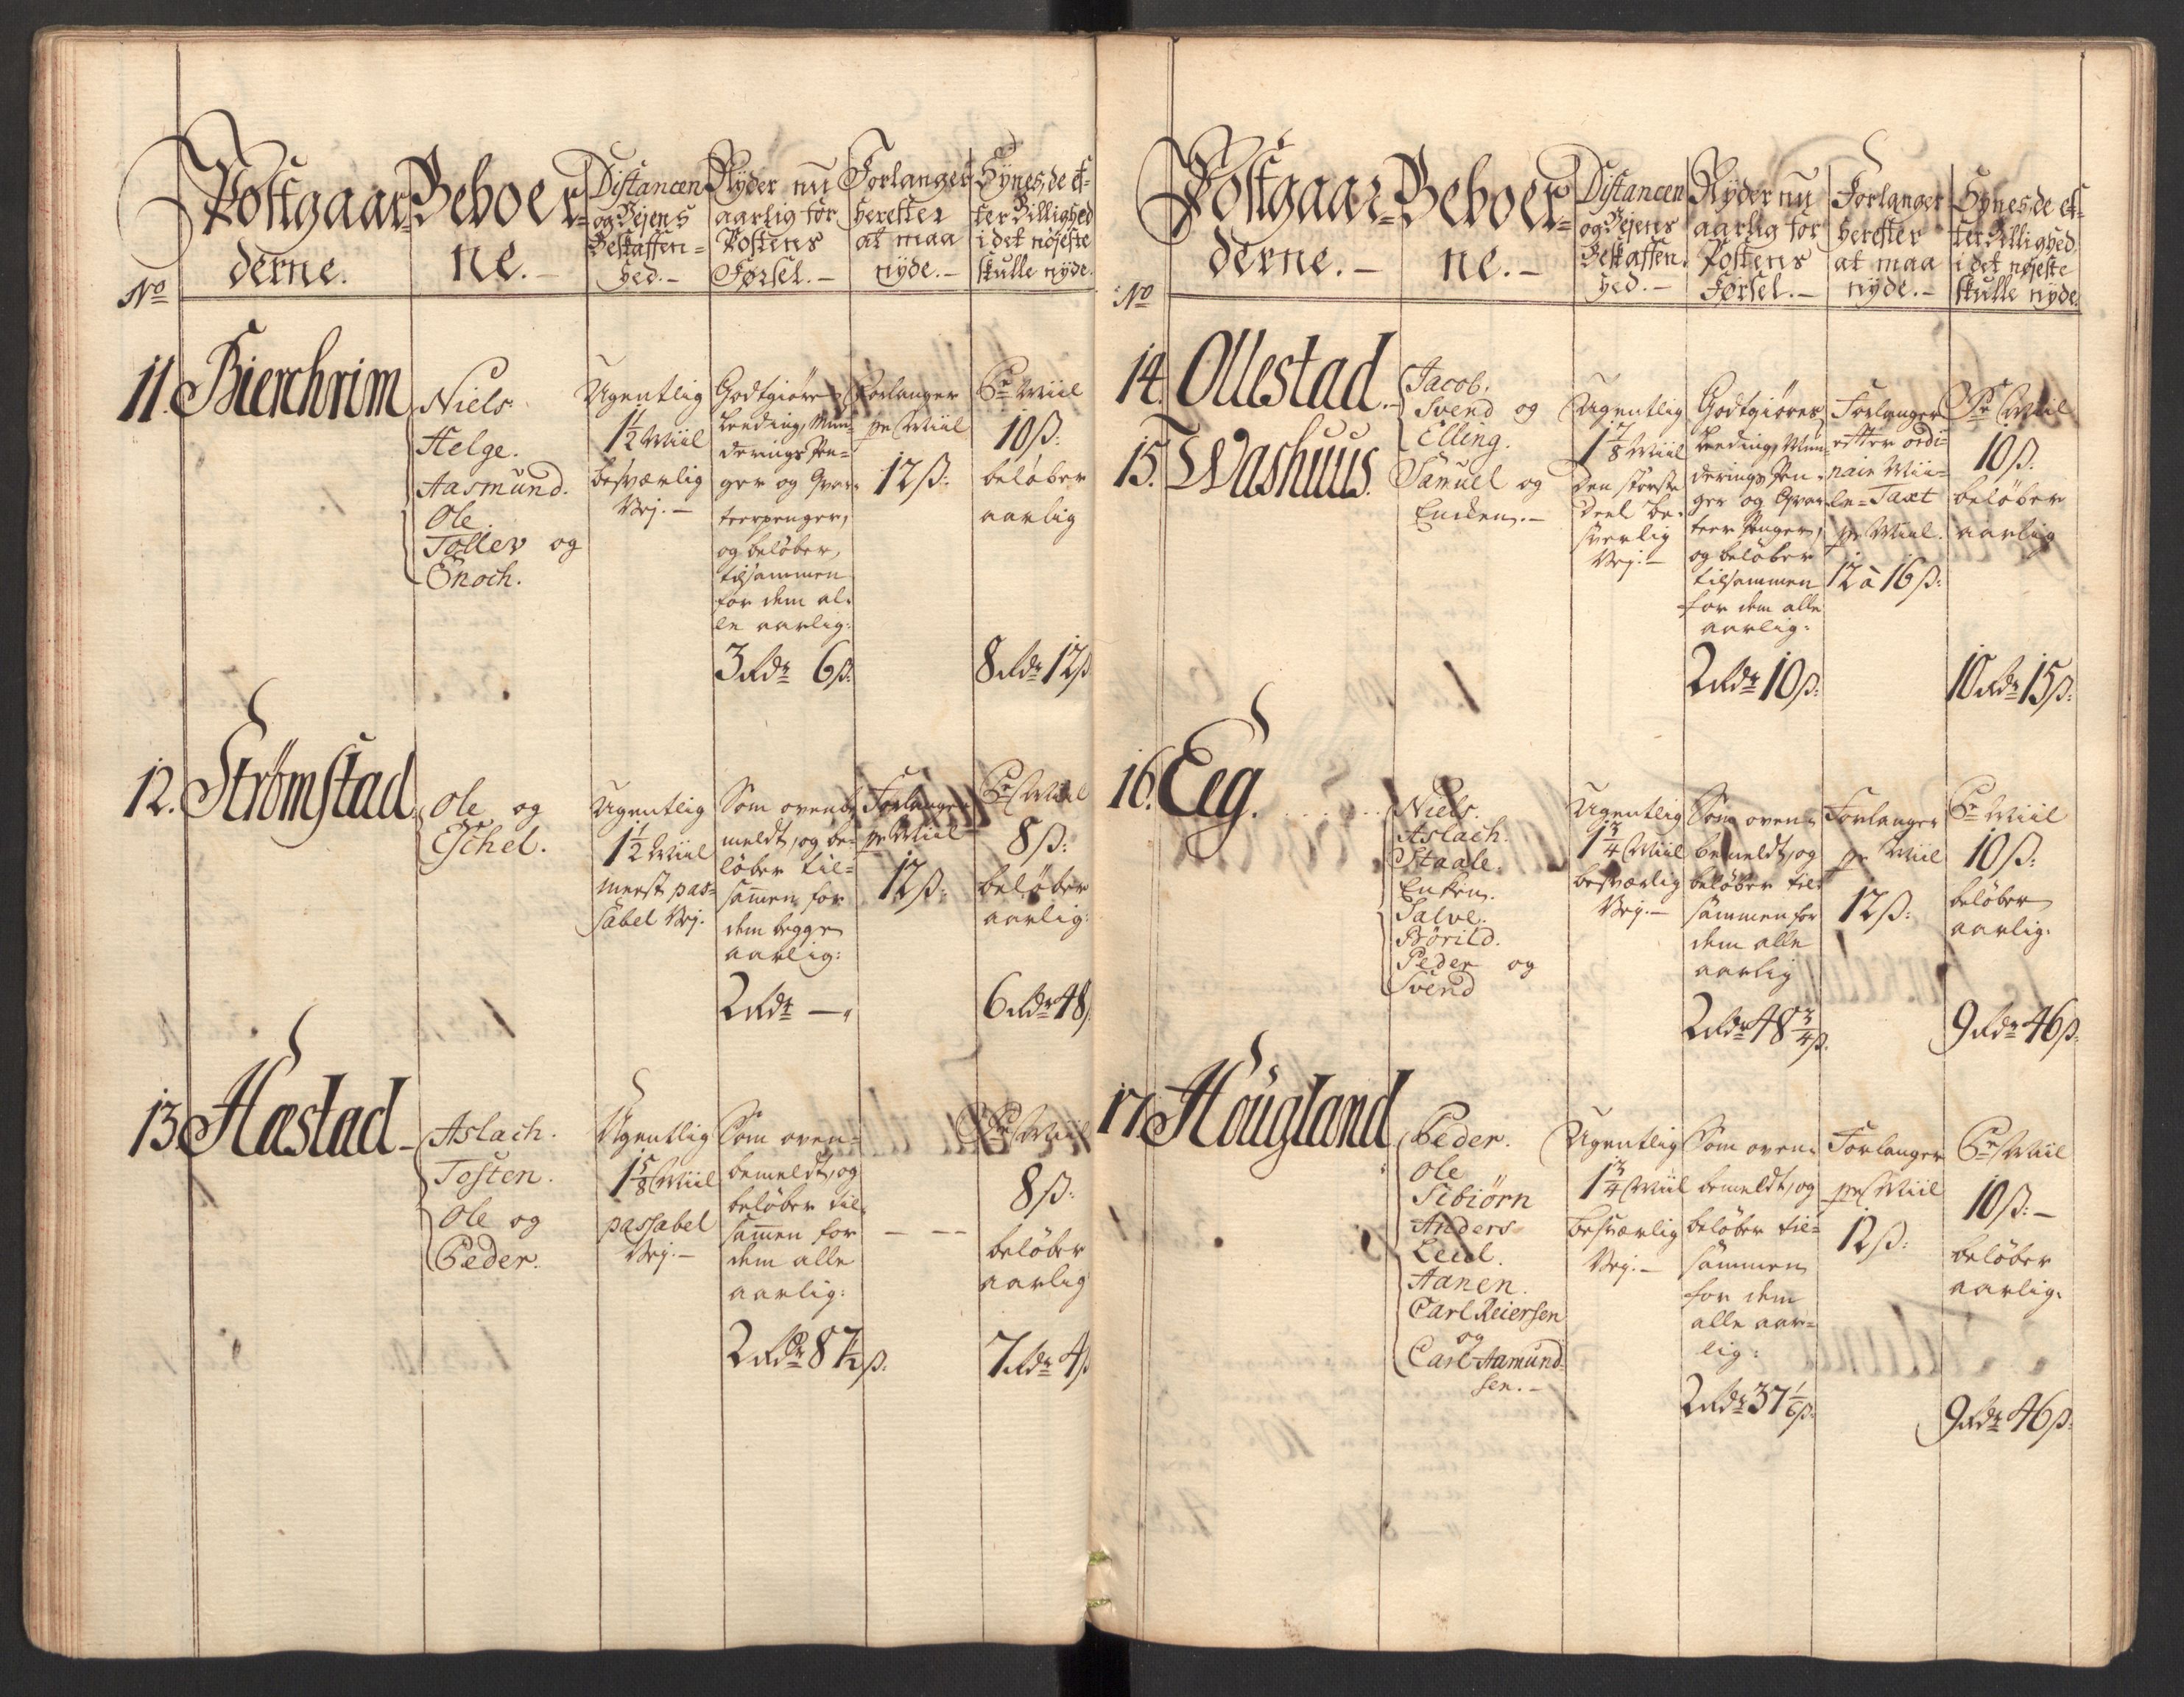 Postgaar-
derne.
Beboer-
ne.-
Distancen
og Vejens
Beskaffen-
hed.-
Nyder nu
aarlig for
Postens
Førsel.-
Forlanger
herefter
at maa
nyde.-
Synes, de ef-
ter Billighed
i det nøjeste
skulle nyde.
No
11. Bierchrim
Niels.
Helge.
Aasmund.
Ole.
Tollev og
Enoch.
Ugentlig
1 1/2 Miil
besværlig
Vej.-
Godtgiøres
Leeding, Mun-
derings Pen-
ger og Qvar-
teerpenger,
og beløber,
tilsammen
for dem al-
le aarlig:
3 Rdr 6 ß:
Forlanger
pr Miil
12 ß:
Pr Miil
10 ß:
beløber
aarlig
8 Rdr 12 ß
12. Strømstad
Ole og
Eschel.
Ugentlig
1 1/2 Miil
meest pas-
sabel Vej.
Som oven
meldt, og be-
løber til-
sammen for
dem begge
aarlig:
2 Rdr —"
Forlanger
pr Miil
12 ß:
Pr Miil
8 ß:
beløber
aarlig:
6 Rdr 48
13. Hæstad-
Aslach.
Tosten.
Ole og
Peder.
Ugentlig
1 5/8 Miil
passabel
Vej.-
Som oven-
bemeldt, og
beløber til-
sammen for
dem alle
aarlig:
2 Rdr 87 1/2 ß:
— — —
Pr Miil
8 ß:
beløber
aarlig
7 Rdr 4 ß
Postgaar-
derne.-
Beboer-
ne.-
Distancen
og Vejens
Beskaffen-
hed.-
Nyder nu
aarlig for
Postens
Førsel.-
Forlanger
herefter
at maa
nyde.-
Synes, de ef-
ter Billighed,
i det nøjeste
skulle nyde.
No
14. Ollestad.-
15. Washuus.
Jacob.
Svend og
Elling.
Samuel og
Enken.-
Ugentlig
1 7/8 Miil
den største
Deel be-
sverlig
Vej.-
Godtgiøres
Leeding, Mun-
derings Pen-
ger og Qvar-
teer Penger,
og beløber
tilsammen
for dem alle
aarlig:
2 Rdr 10 ß:
Forlanger
efter ordi-
naire Mii-
le-Taxt
pr Miil.
12 à 16 ß:
Pr Miil
10 ß:
beløber
aarlig
10 Rdr 15 ß:
16. Eeg. . . . . .
Niels.
Aslach.
Staale.
Enken.
Salve.
Børild.
Peder og
Svend
Ugentlig
1 3/4 Miil
besværlig
Vej.-
Som oven-
bemeldt, og
beløber til-
sammen for
dem alle
aarlig
2 Rdr 48 3/4 ß.
Forlanger
pr Miil
12 ß:
Pr Miil
10 ß:
beløber
aarlig.
9 Rdr 46 ß:
17. Hougland
Peder.
Ole
Sibiørn
Anders
Leul.
Aanen.
Carl Reiersen
og
Carl Aamund-
sen.-
Ugentlig
1 3/4 Miil
besværlig
Vej.-
Som oven-
bemeldt, og
beløber til-
sammen
for dem
alle aar-
lig:
2 Rdr 37 1/6 ß:
Forlanger
pr Miil
12 ß:
Pr Miil
10 ß:-
beløber
aarlig:
9 Rdr 46 ß: